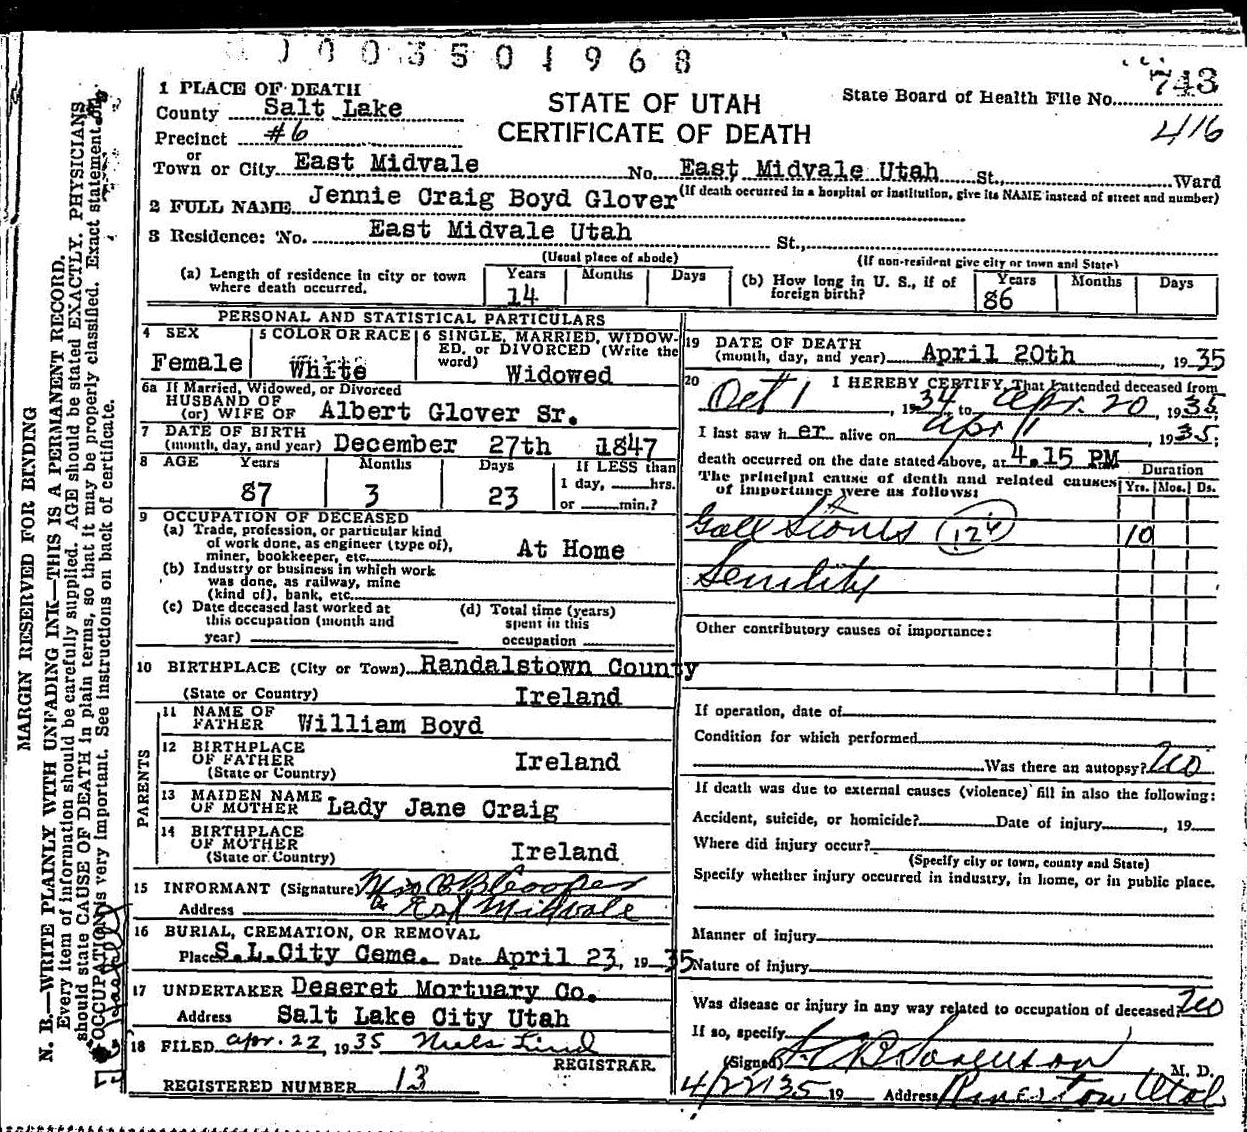 1003501968
1 PLACE OF DEATH
County Salt Lake
STATE OF UTAH
State Board of Health File No. 743
Precinct #6
CERTIFICATE OF DEATH
416
or
Town or City East Midvale No. East Midvale Utah St., Ward
(If death occurred in a hospital or institution, give its NAME instead of street and number)
2 FULL NAME Jennie Craig Boyd Glover
3 Residence: No. East Midvale Utah St.,
(Usual place of abode) (If non-resident give city or town and State)
(a) Length of residence in city or town where death occurred. Years 14 Months Days
(b) How long in U. S., if of foreign birth? Years 86 Months Days
PERSONAL AND STATISTICAL PARTICULARS
4 SEX Female
5 COLOR OR RACE White
6 SINGLE, MARRIED, WIDOWED, or DIVORCED (Write the word) Widowed
6a If Married, Widowed, or Divorced
HUSBAND OF
(or) WIFE OF Albert Glover Sr.
7 DATE OF BIRTH
(month, day, and year) December 27th 1847
8 AGE Years Months Days If LESS than
87 3 23 1 day, hrs.
or min.?
9 OCCUPATION OF DECEASED
(a) Trade, profession, or particular kind
of work done, as engineer (type of),
miner, bookkeeper, etc. At Home
(b) Industry or business in which work
was done, as railway, mine
(kind of), bank, etc.
(c) Date deceased last worked at
this occupation (month and
year)
(d) Total time (years)
spent in this
occupation
10 BIRTHPLACE (City or Town) Randalstown County
(State or Country) Ireland
PARENTS
11 NAME OF
FATHER William Boyd
12 BIRTHPLACE
OF FATHER Ireland
(State or Country)
13 MAIDEN NAME
OF MOTHER Lady Jane Craig
14 BIRTHPLACE
OF MOTHER
(State or Country) Ireland
15 INFORMANT (Signature) Mrs C B Cooper
Address East Midvale
16 BURIAL, CREMATION, OR REMOVAL
Place S.L.City Ceme. Date April 23, 1935
17 UNDERTAKER Deseret Mortuary Co.
Address Salt Lake City Utah
18 FILED Apr. 22, 1935 Niels Lind
REGISTRAR.
REGISTERED NUMBER 13
19 DATE OF DEATH
(month, day, and year) April 20th, 1935
20 I HEREBY CERTIFY, That I attended deceased from
Oct 1, 1934, to Apr. 20, 1935
I last saw her alive on Apr 1, 1935;
death occurred on the date stated above, at 4.15 PM
The principal cause of death and related causes
of importance were as follows:
Duration
Yrs. Mos. Ds.
Gall Stones 10
Senility
Other contributory causes of importance:
If operation, date of
Condition for which performed
Was there an autopsy? No
If death was due to external causes (violence) fill in also the following:
Accident, suicide, or homicide? Date of injury, 19
Where did injury occur?
(Specify city or town, county and State)
Specify whether injury occurred in industry, in home, or in public place.
Manner of injury
Nature of injury
Was disease or injury in any way related to occupation of deceased? No
If so, specify
(Signed) Sorenson M. D.
4/22/35 19 Address Riverton Utah
MARGIN RESERVED FOR BINDING
N. B.—WRITE PLAINLY WITH UNFADING INK—THIS IS A PERMANENT RECORD.
Every item of information should be carefully supplied. AGE should be stated EXACTLY. PHYSICIANS
should state CAUSE OF DEATH in plain terms, so that it may be properly classified. Exact statement of
OCCUPATION is very important. See instructions on back of certificate.